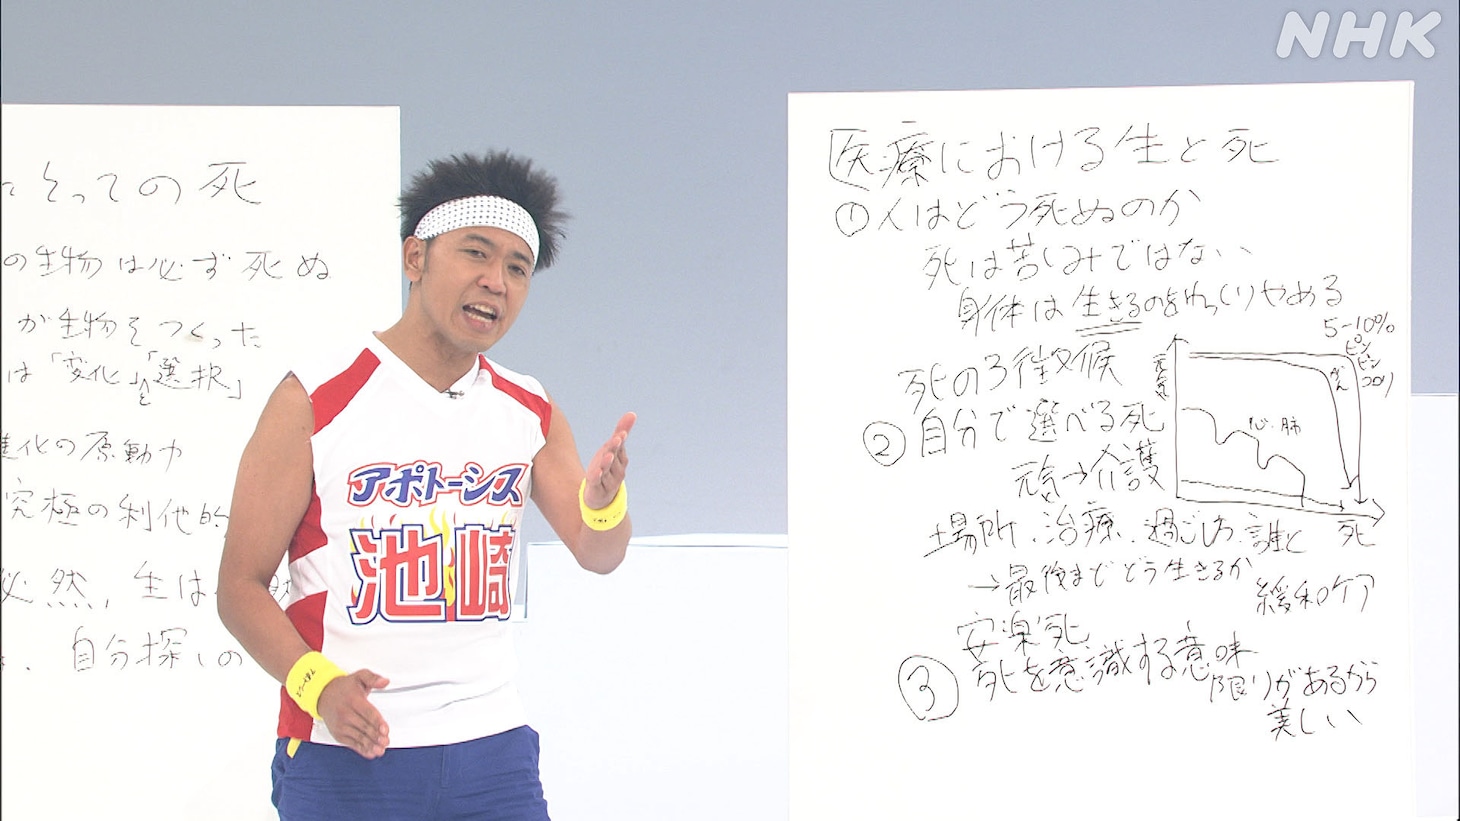 NHK
とっての死
の生物は必ず死ぬ
が生物をつくった
は「変化」と「選択」
進化の原動力
究極の利他的
必然、生は
自分探しの
アポトーシス
池崎
医療における生と死
①人はどう死ぬのか
死は苦しみではない
身体は生きるのをゆっくりやめる
死の3徴候
②自分で選べる死
元気→介護
場所・治療・過ごし方・誰と
→最後までどう生きるか
緩和ケア
安楽死
③死を意識する意味
限りがあるから
美しい
5-10%
ピン
ピン
コロリ
がん
元気
心・肺
死